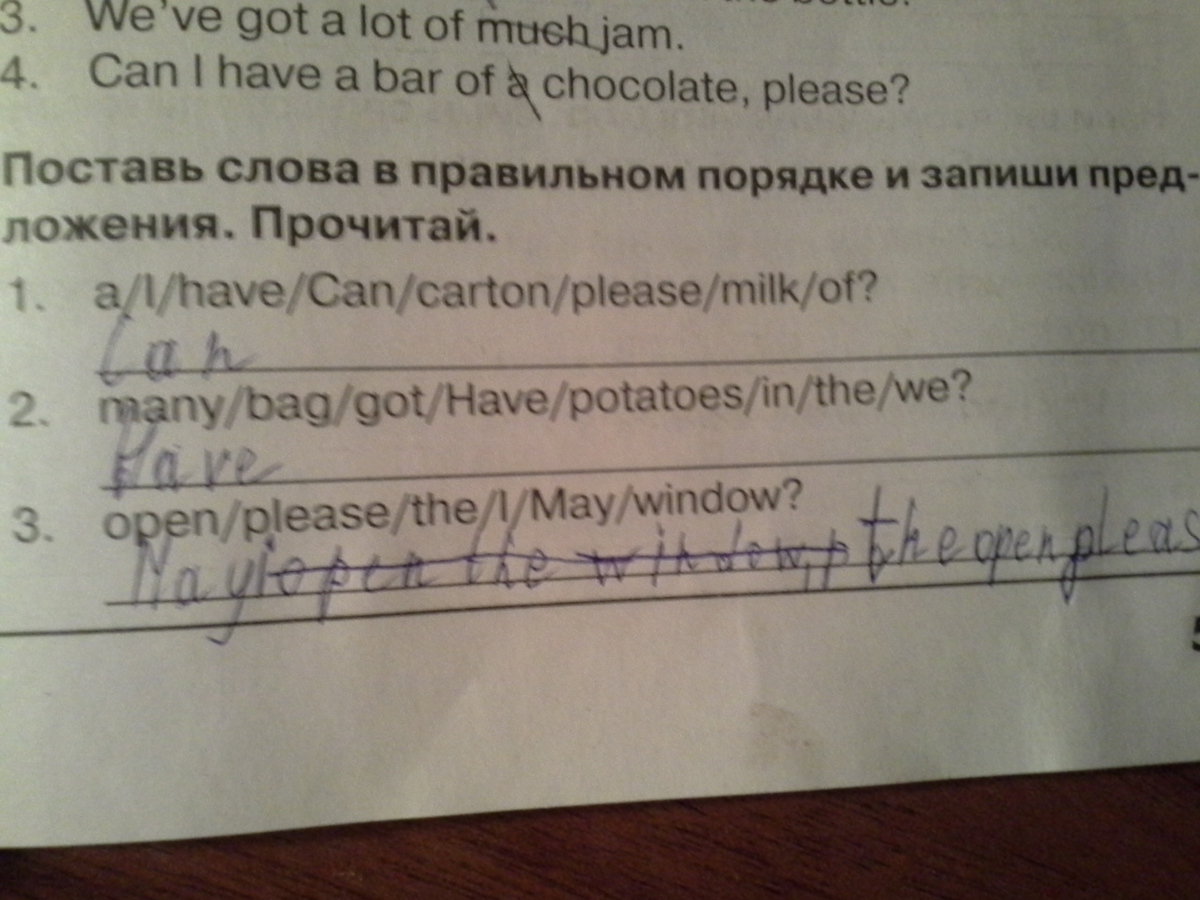 3. We've got a lot of much jam.
4. Can I have a bar of a chocolate, please?
Поставь слова в правильном порядке и запиши пред-
ложения. Прочитай.
1. a/I/have/Can/carton/please/milk/of?
Can
2. many/bag/got/Have/potatoes/in/the/we?
Have
3. open/please/the/I/May/window?
May I open the window, p the open pleas